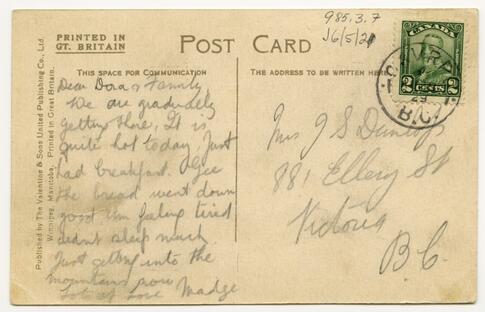 PRINTED IN
GT. BRITAIN
POST CARD
985.3.7
J6/5/21
THIS SPACE FOR COMMUNICATION
THE ADDRESS TO BE WRITTEN HERE
CANADA
2 CENTS 2
29
B.C.
Published by The Valentine & Sons United Publishing Co., Ltd.
Winnipeg, Manitoba. Printed in Great Britain.
Dear Dora & Family
We are gradually
getting there, It is
quite hot today, Just
had breakfast. Gee
the bread went down
good am feeling tired
didnt sleep much
Just getting into the
mountains now
Lots of Love Madge
Mrs J S Dunlop
881 Ellery St
Victoria
B.C.